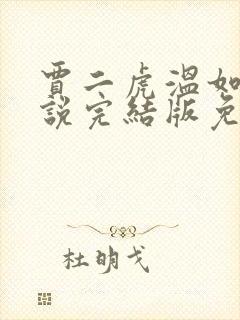 賈二虎溫如
說完結版免
杜明戈